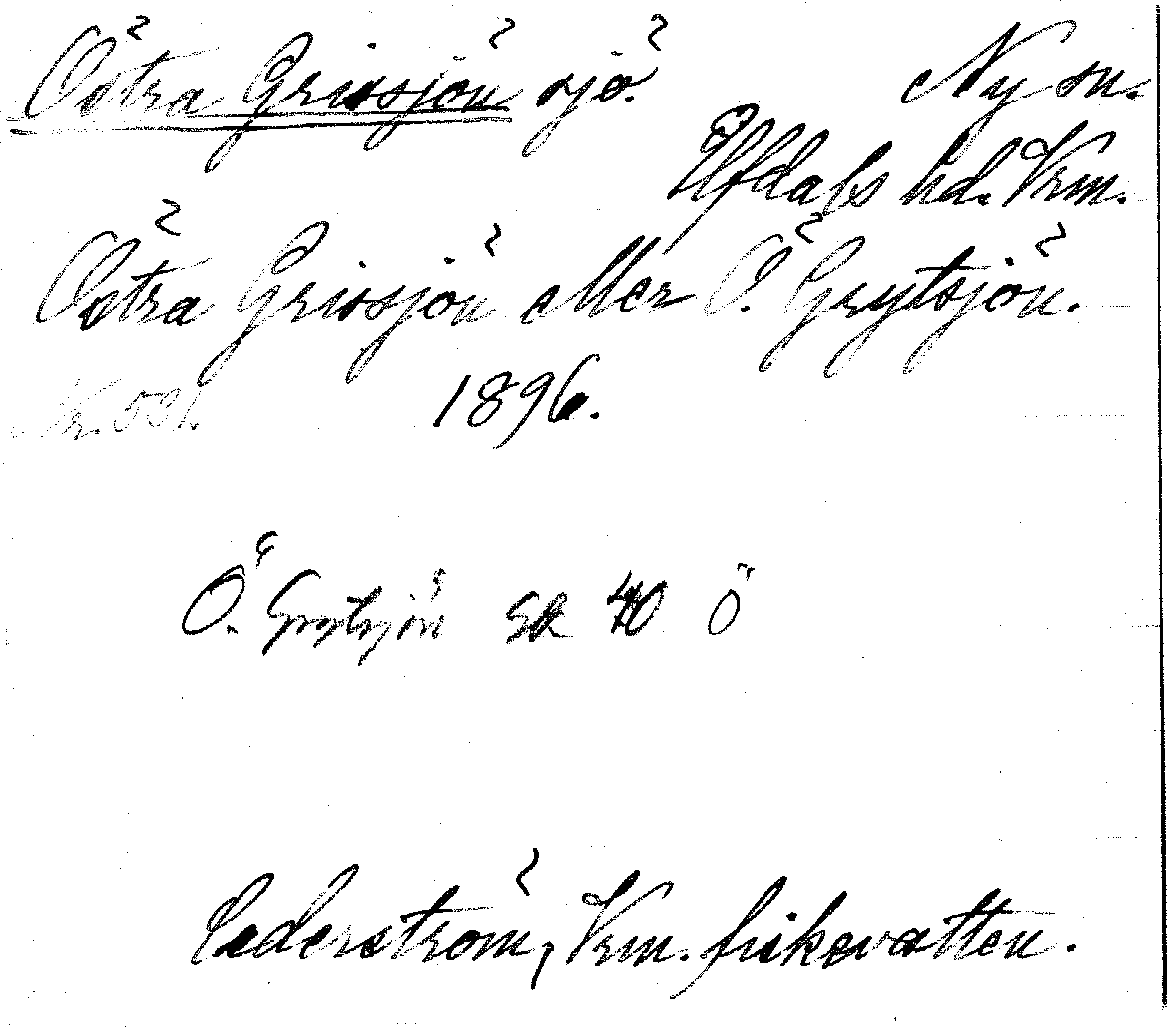 Östra Grissjön sjö. Ny sn.
Elfdals hd. Vrm.
Östra Grissjön eller Ö. Grytsjön.
Nr. 531. 1896.
Ö. Grytsjön GK 40 Ö
Cederström, Vrm. fiskevatten.